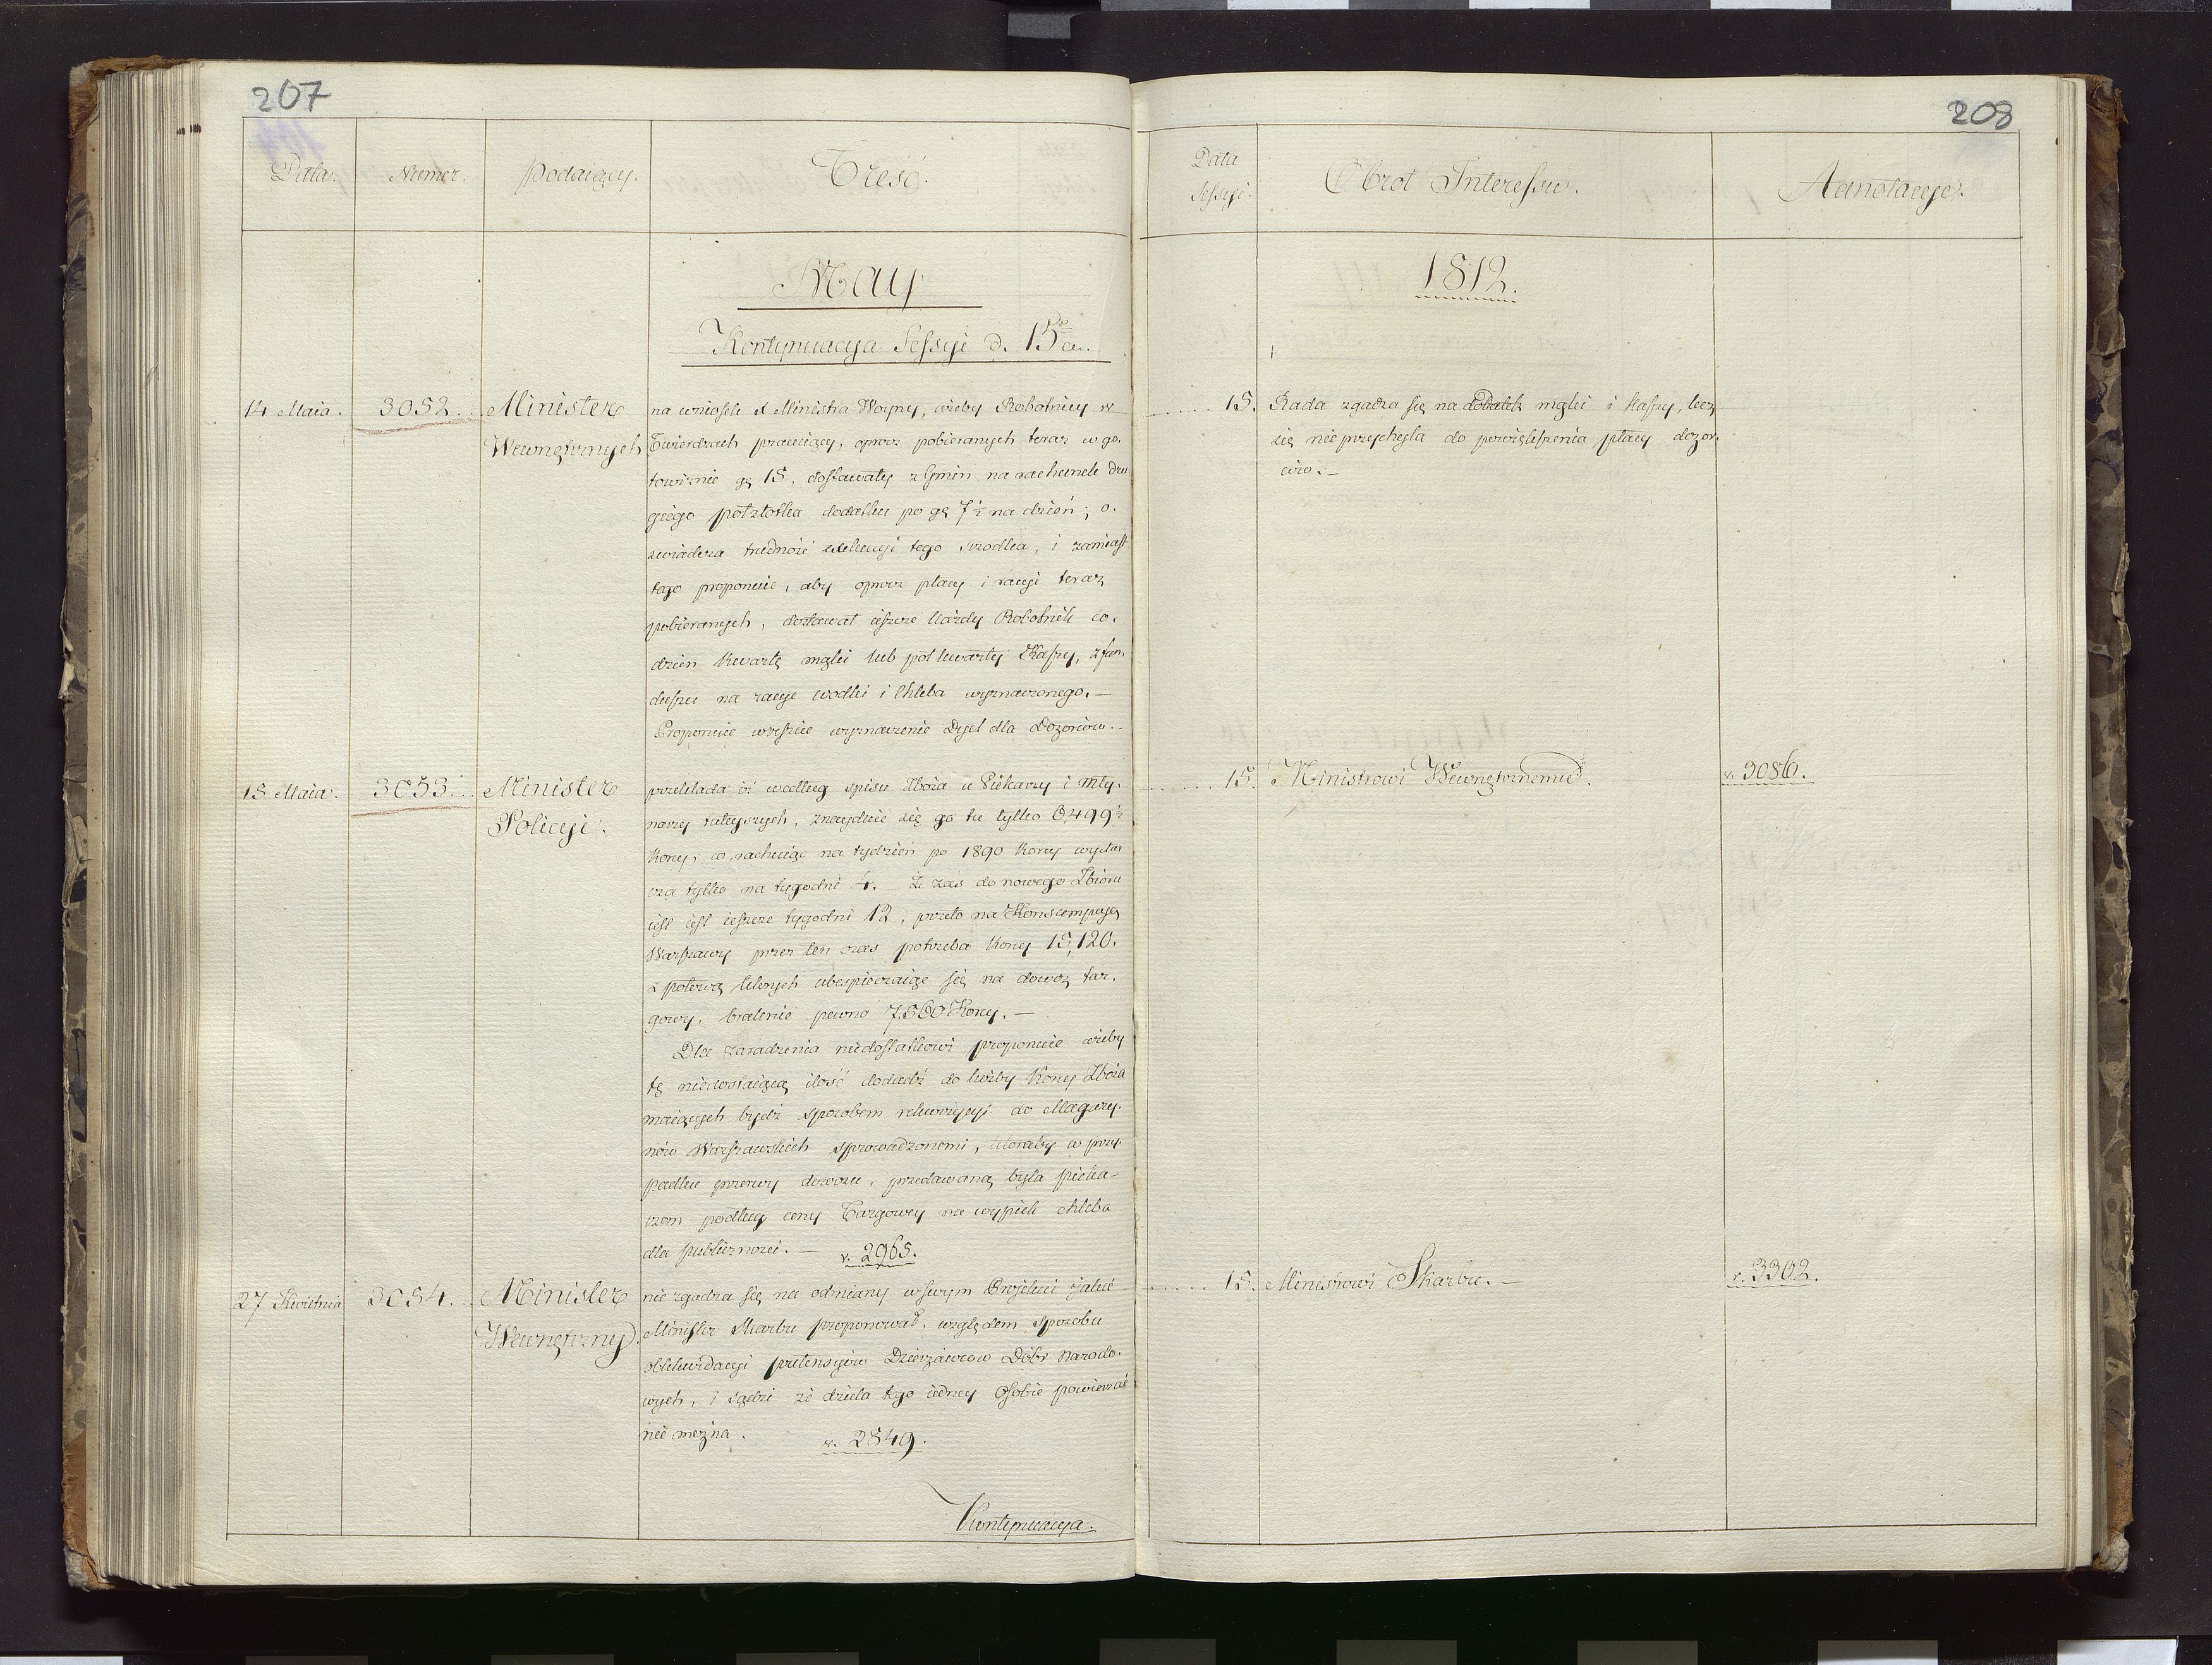 207
Data.
Numer.
Podaiący.
Treść.
May
Kontynuacya Sessyi d. 15go ca.
14 Maia.
3052.
Minister
Wewnętrznych
na wniosek Ministra Woyny, ażeby Robotnicy w
Twierdzach pracuiący, oprocz pobieranych teraz w go-
towiznie gę 15, dostawały z Gmin na rachunek dru
giego połzłotka dodatku po gę 7½ na dzień; o-
swiadcza trudność exekucyi tego srzodka, i zamiast
tego proponuie, aby oprocz płacy i racyi teraz
pobieranych, dostawał ieszcze każdy Robotnik co-
dzien kwartę mąki lub poł kwarty Kaszy, z fun-
duszu na racye wodki i Chleba wyznaczonego. —
Proponuie wreszcie wyznaczenie Dyet dla Dozorców. -
15 Maia.
3053.
Minister
Policyi.
przekłada iż według spisu Zboża u Piekarzy i Mły-
narzy tuteyszych, znayduie się go tu tylko 8,499½
Korcy, co rachuiąc na tydzień po 1890 Korcy wystar
cza tylko na tygodni 4. — Że zaś do nowego Zbioru
iest ieszcze tygodni 12, przeto na Konsumpcyą
Warszawy przez ten czas potrzeba Korcy 15,120.
z połową których ubespieczaiąc się na dowoz tar-
gowy, braknie pewno 7,560 Korcy. —
Dla zaradzenia niedostatkowi proponuie ażeby
tę niedostaiącą ilość dodadź do liczby Korcy Zboża
maiących bydź sposobem rekwizycyi do Magazy-
nów Warszawskich sprowadzonemi, któraby w przy-
padku przerwy dowozu, przedawaną była pieka-
rzom podług ceny Targowey na wypiek chleba
dla publicznosci. — v. 2965.
27 Kwietnia
3054.
Minister
Wewnętrzny.
nie zgadza się na odmiany w swym Projekcie iakie
Minister Skarbu proponował, względem sposobu
oblikwidacyi pretensyiów Dzierzawców Dóbr Narodo-
wych, i sądzi że dzieła tego iedney Osobie powierzać
nie można. v. 2549.
Kontynuacya.
208
Data
Sessyi.
Obrot Interessu.
Adnotacye.
1812.
15. Rada zgadza się na dodatek mąki i kaszy, lecz
się nie przychyla do powiększenia płacy dozor-
ców. —
15. Ministrowi Wewnętrznemu.
v. 3086.
15. Ministrowi Skarbu. —
v. 3302.